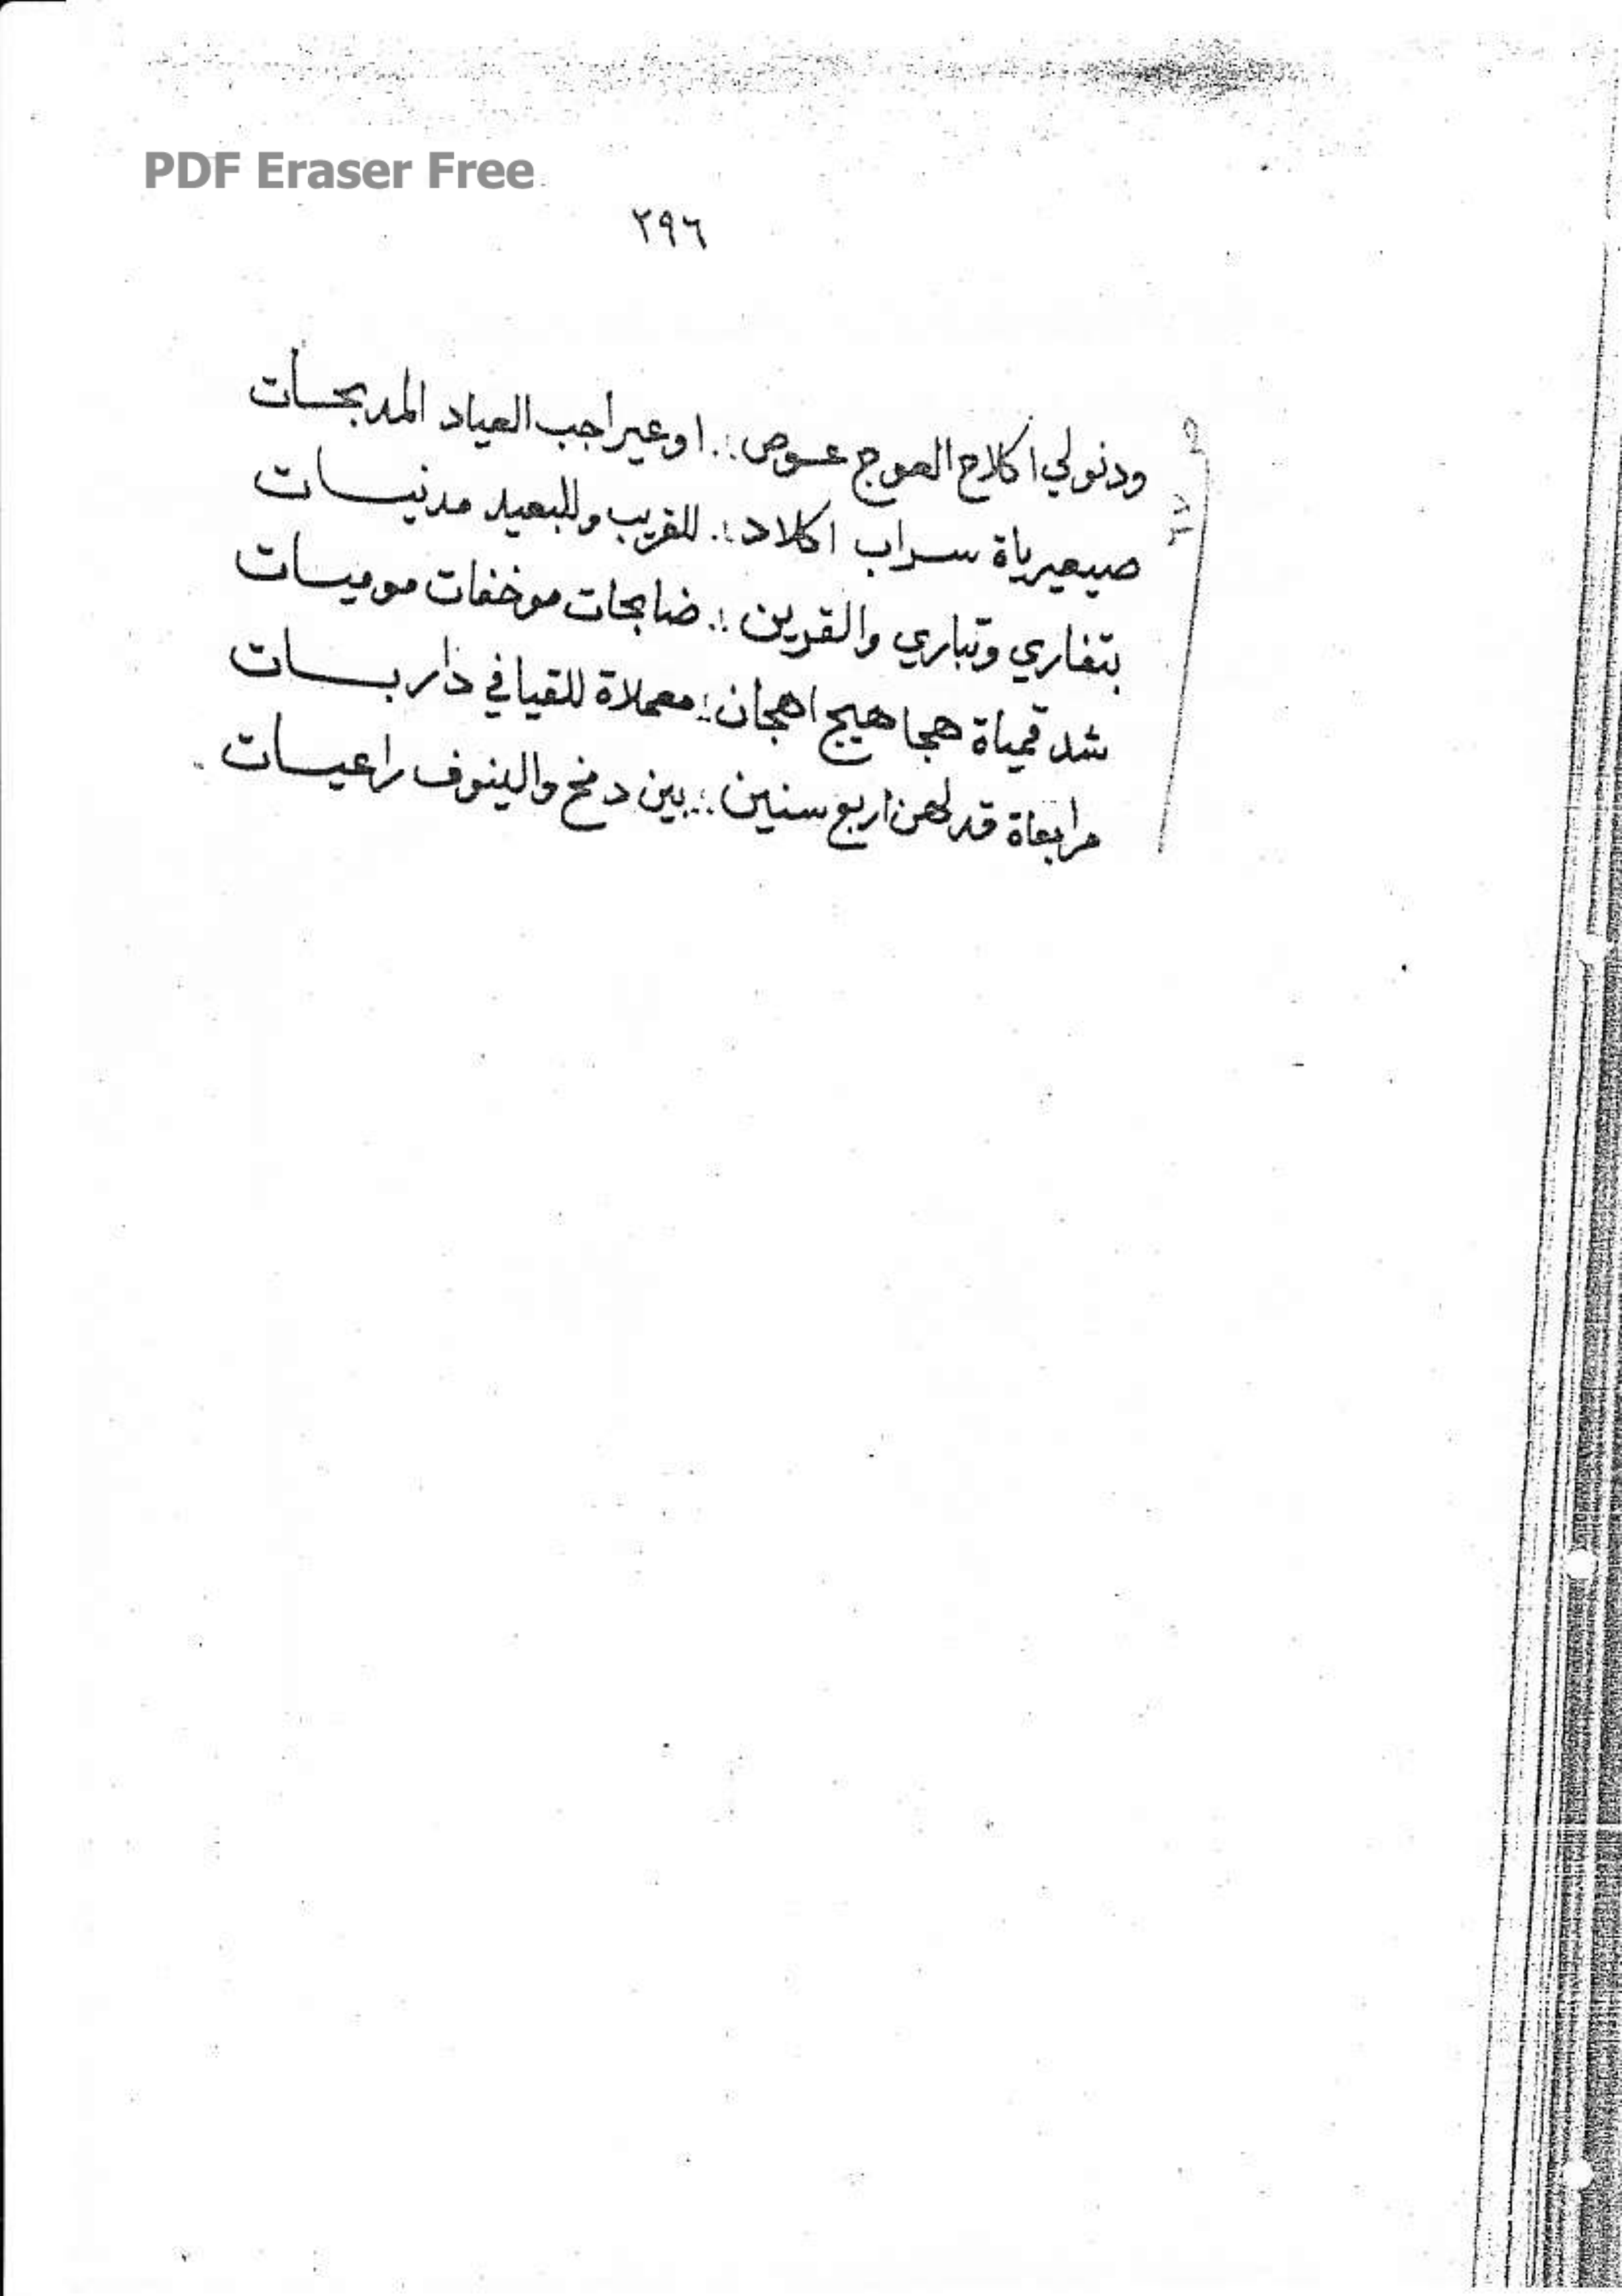 PDF Eraser Free
٢٩٦
ودنولي اكلاح العوج عوص ∴ اوعيراجب العياد المدبحسات
صيعيرياة سراب اكلاد ∴ للقريب وللبعيد مدنيسات
بتغاري وتباري والقرين ∴ ضابحات موخفات موميسات
شدقمياة هجاهيج اهجان ∴ معملاة للقيافي داربسات
مرابعاة قدلهن اربع سنين ∴ بين دمخ والينوف راعيسات